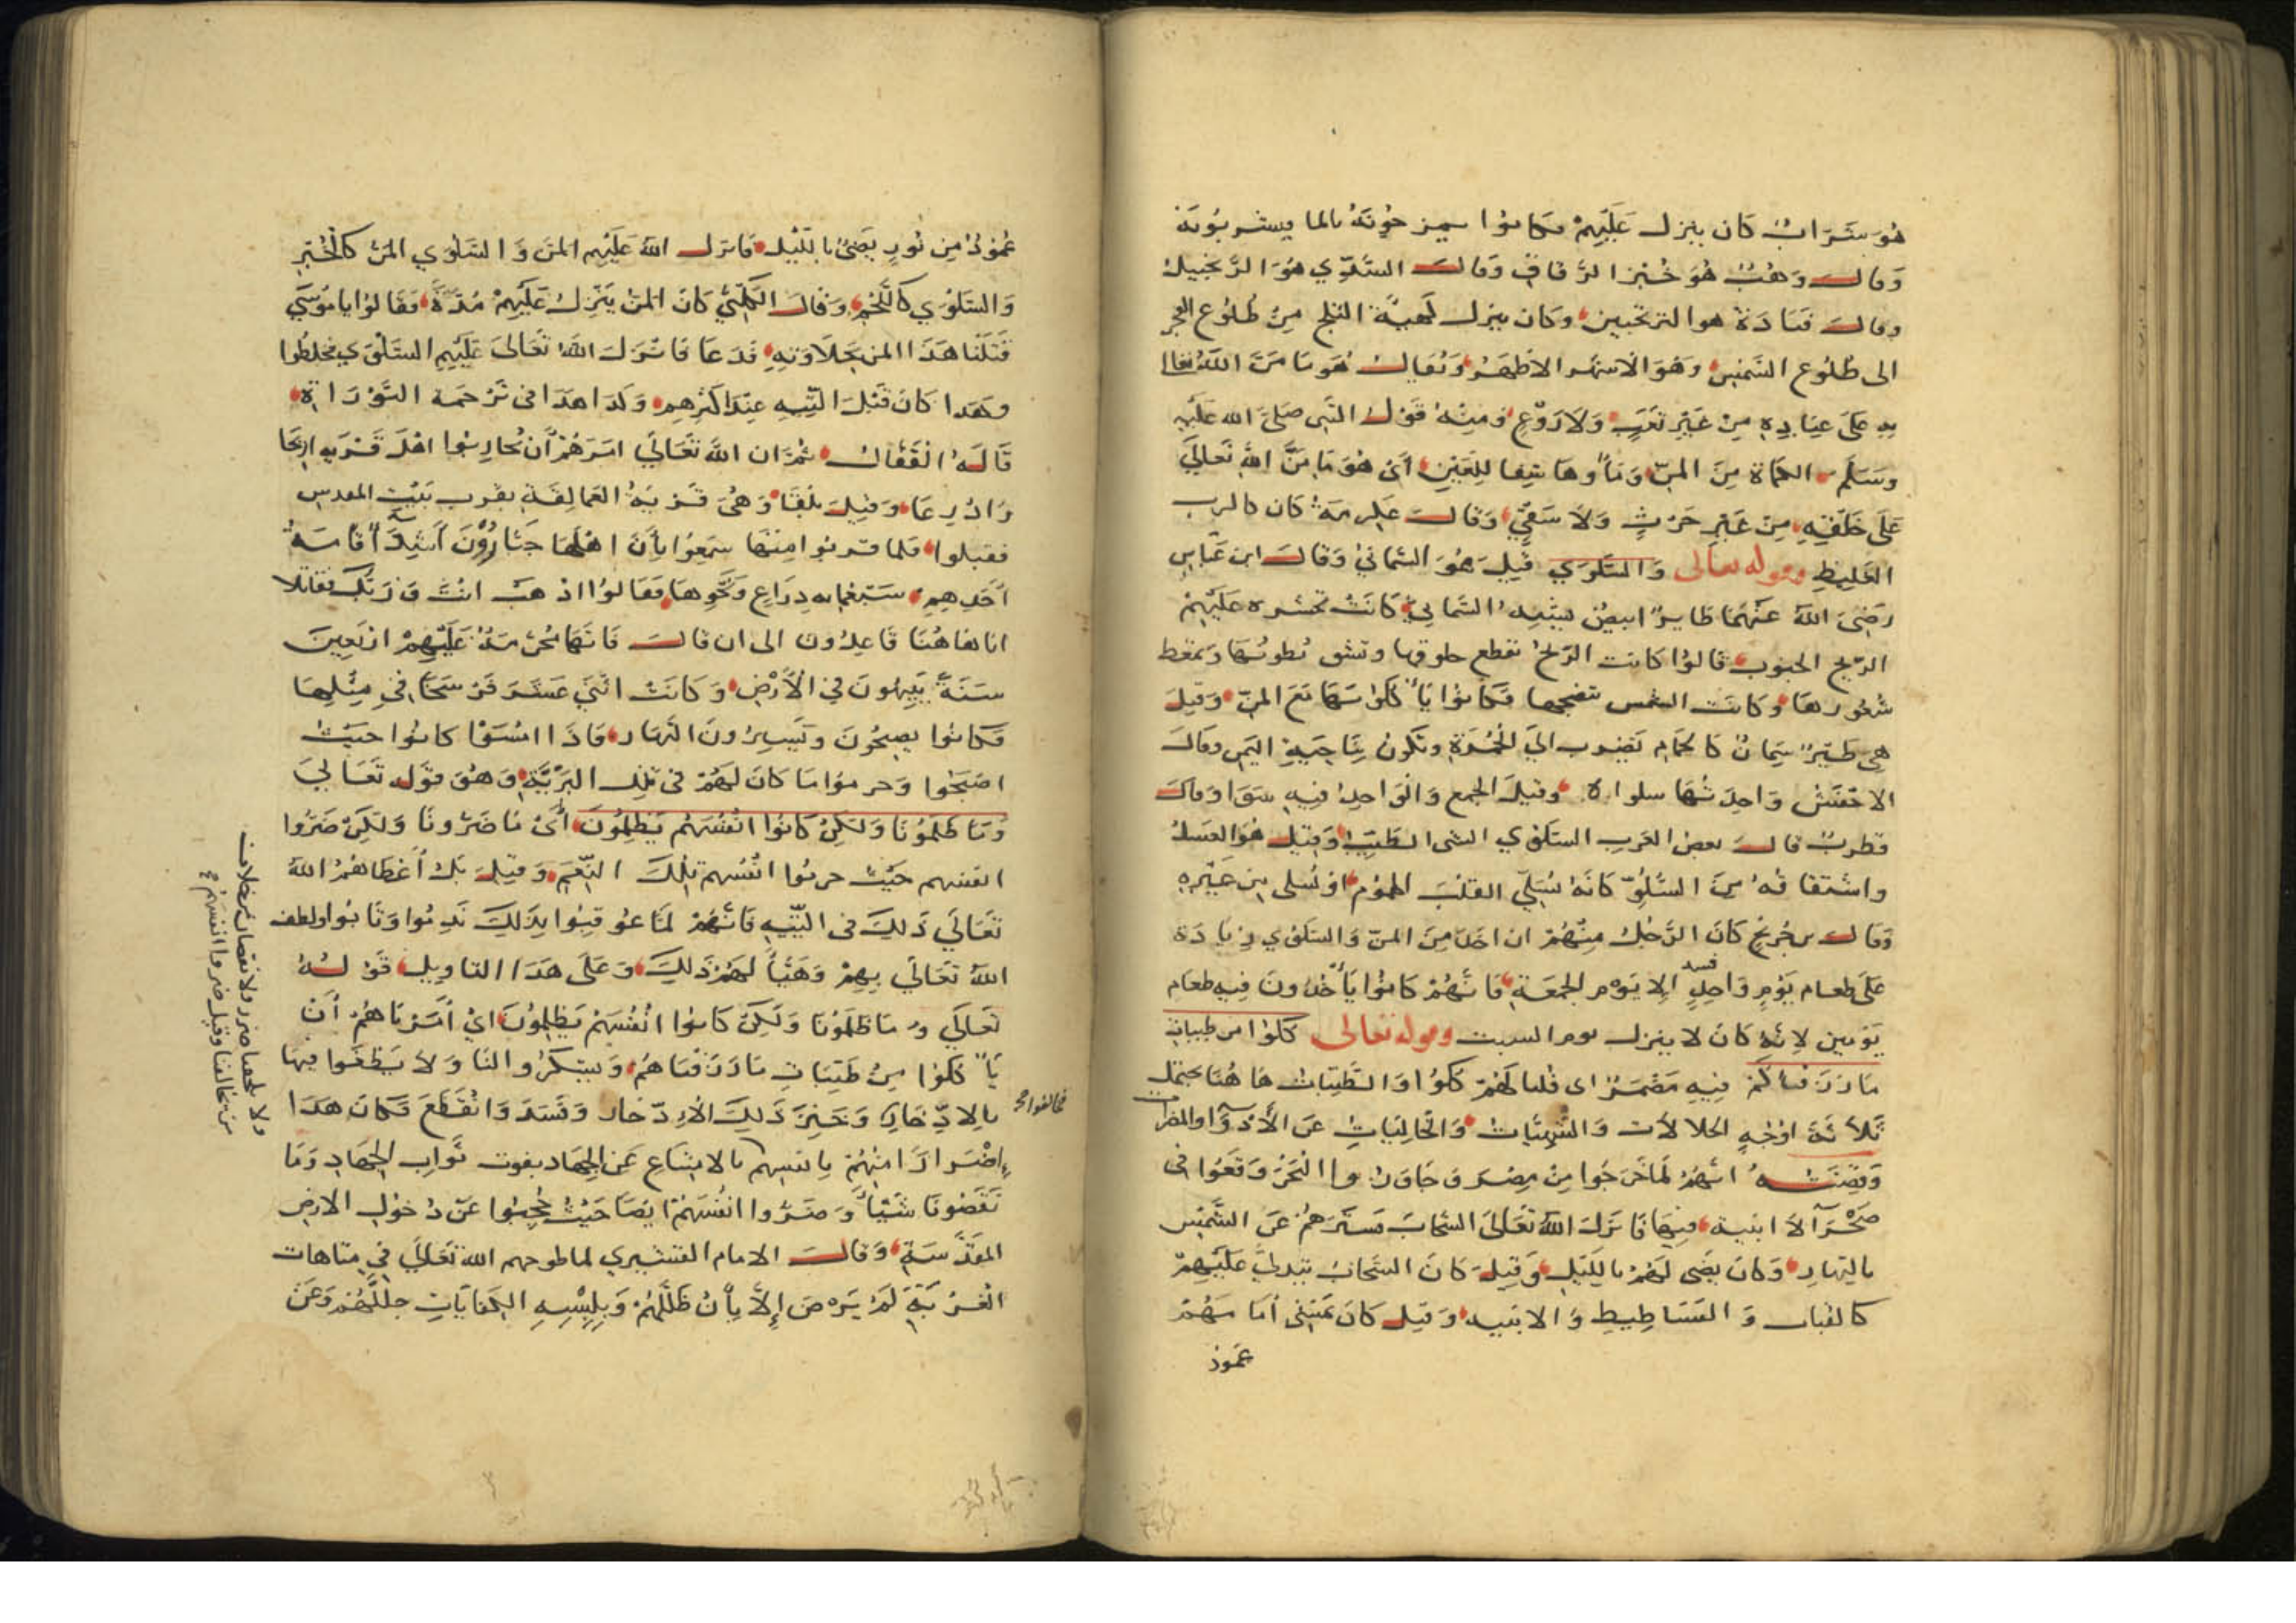 هُوَ شَرَابٌ كَان ينزل عَلَيْهِمْ فكانوا يمزجُونَهُ بالما فيشربُونَهُ
وَقالَ وَهْبٌ هُوَ خُبْز الرّقاقِ وَقالَ السُّدِّي هُوَ الزَّنجبيلُ
وقالَ قتادَة هو الترنجبين وكان ينزل كهيئة الثلج مِنْ طُلُوع الفجر
الى طُلُوع الشَّمْسِ وَهُوَ الاشهر الاظهَرُ وَيُقالُ هُوَ مَا مَنَّ اللهُ تعالى
بِهِ عَلَى عِبَادِهِ مِنْ غَيْرِ تَعَبٍ وَلاَ زَرْعٍ وَمِنْهُ قَوْلُ النَّبي صَلَى الله عَلَيْهِ
وسَلم الكمأة مِنَ المَنِّ وَمَاؤُها شِفا لِلعَيْنِ أىْ هُوَ مَا مَنَّ اللهُ تَعَالَى
عَلَى خَلْقِهِ مِنْ غَيْرِ حَرْثٍ وَلاَ سَقْيٍ وَقالَ عِكرِمَةُ كَان كالرب
الغَليظِ وقوله تعالى وَالسَّلْوَى قِيلَ هُوَ السُّمانيُ وَقالَ ابن عَبّاسٍ
رَضِيَ اللهُ عَنْهُمَا طَايِرٌ ابيضُ يشْبِهُ السُّمانِيُ كَانَتْ تحشره عَلَيْهِمْ
الرّيح الجنوب قالُوا كانت الرّيحُ تقطع حلوقها وتشق بُطونَهَا وَتمعط
شعُورهَا وَكانَت الشمس تنضجها فكَانوا يَأكُلوُنهَا مَعَ المَنّ وَقِيلَ
هِي طَيْرٌ سِمانٌ كالحَمَام تَضرب الىَ الحُمْرَةِ وتكُونُ بِنَاحِيةِ اليَمنِ وقالَ
الاخفَشُ وَاحِدَتُهَا سلواةٌ وَقيلَ الجمع وَالوَاحِدُ فيهِ سَوَا وَقالَ
قطربٌ قالَ بعض العَربِ السَّلوي الشي الطَّيّبُ وَقيلَ هُوَ العَسَلُ
واشتقاقُهُ مِنَ السُّلُوِّ كَانَهُ يُسَلِّي القلبَ المهموم اوْ يُسلى مِن غَيْرِهِ
وَقالَ بن جُرَيْجٍ كَانَ الرَّجُلُ مِنْهُمْ ان اخَذَ مِنَ المَنّ وَالسَّلوَي زِيَادَة
عَلَى طعام يَوْمٍ وَاحِدٍ فسد إلا يَوْم الجُمعَة فَانَّهُمْ كَانوُا يَأخُذونَ فِيهِ طعام
يَوْمين لِانَّهُ كانَ لا يَنزل يوم السبت وقوله تعالى كلُوا من طيبات
مَا رَزَقناكُمْ فِيهِ مُضمَرٌ اى قُلنا لَهُمْ كُلُوُا وَالطَّيّبَاتُ هَا هُنا يحتمل
ثَلاَثَةَ اوْجُهٍ الحلالات وَالشهيّات وَالخالِيَاتِ عَنِ الأَدْوَآ وَالمضرات
وَقِصَّتُهُ انَّهُمْ لمَّا خَرَجُوا مِنْ مِصْرَ وَجَاوَزُوا البَحْرَ وَقعُوا في
صَحْرَآ لاَ ابنية فيهَا فَانزَلَ اللهُ تَعَالىَ السَّحَابَ فستَرَهُمْ عَن الشَّمْس
بالنَهارِ وَكَانَ يضى لَهُمْ باللَيلِ وَقِيلَ كَانَ السَّحَابُ يتدلى عَلَيْهِمْ
كالقباب وَالفَسَاطِيطِ وَالابنيهِ وَقيل كَانَ يمْشِى أمَامَهُمْ
عمُود
عَمُودٌ مِن نُورٍ يَضيُ بالليْلِ فَانزلَ اللهُ عَلَيْهِم المَنَّ وَالسَّلْوَي المَنّ كالخُبْزِ
وَالسَّلْوَي كاللّحْمِ وَقَالَ الكَلبيُّ كَانَ المنّ يَنْزِلُ عَلَيْهِمْ مُدَّةً فقَالوُا يا مُوسَى
قَتَلَنَا هَذا المنّ بحَلاَوَتِهِ فَدَعَا فَانزَلَ اللهُ تَعَالىَ عَلَيْهِم السَّلْوَي فخلطُوا
وهَذا كانَ قَبْلَ التّيهِ عِنْدَ اكثرِهِم وَكَذا هَذا في تَرْجَمَة التَّوْرَاةِ
قَالَهُ القَفَّالُ ثُمَّ ان اللهَ تَعَالَى امَرَهُمْ أن يُحَارِبوُا اهْلَ قَرْيَةِ اريحَا
وَاذرِعَا وَقِيلَ بلقا وَهىَ قَرْيَةُ العَمَالِقَة بقرب بَيْتِ المقدس
فقبلوا فلما قربوا مِنهَا سَمِعُوا بأنّ اهْلهَا جَبَّارُوْنَ أشِدَّآ قامَةُ
أحَدِهِمْ سَبْعُمِايه ذِرَاعٍ وَنَحْوهَا فَقالوُا اذهَبْ انْتَ وَرَبُّكَ فقاتلا
انا هَاهُنَا قَاعِدُونَ الى ان قَالَ فَانَّهَا مُحَرَّمَةٌ عَلَيْهِمْ ارْبَعِينَ
سَنَةً يَتِيهُونَ فِي الأَرْضِ وَكانَتْ اثْنَيْ عَشَرَ فَرْسَخًا في مِثْلِهَا
فكَانوا يصبحُونَ وَيَسِيرُونَ النَهَار فَاذَا امْسَوْا كانُوا حَيْثُ
اصْبَحُوا وَحرموا مَا كَانَ لَهُمْ في تلك البَرِّيَّةِ وَهُوَ قَوْلُه تَعَالىَ
وَمَا ظَلَمُونَا وَلَكِنْ كَانُوا انْفُسَهُم يَظلِمُونَ أىْ مَا ضَرُّونَا وَلَكِنْ ضَرُّوا
انفسهم حَيْثُ حرمُوا انفُسهم تِلكَ النِّعَمِ وَقيلَ بَلْ أعْطَاهُمْ اللهُ
تَعَالَى ذَلِكَ في التّيهِ فَانَّهُمْ لمَّا عُوقِبُوا بِذَلِكَ نَدِمُوا وَتَابُوا ولطف
اللهُ تَعَالَى بِهِمْ وَهَيَّأ لهُمْ ذَلِكَ وَعَلَى هَذَا التاوِيلِ قَوْلُهُ
تَعَالَى وَمَا ظَلَمُونَا وَلَكِنْ كَانوا انْفُسَهُمْ يَظلِمُونَ ايْ أمَرْنَاهُمْ أنْ
يَأكُلوُا مِنْ طَيّبَاتِ مَا رَزَقنَاهُمْ وَيشكرُوا لنَا وَلاَ يَطغَوا فيهَا
بالادّخَارِ وَخَنِزَ ذَلِكَ الاِدّخارُ وَفَسَدَ وَانقَطَعَ فكَانَ هَذَا
فخالفوا صح
إضْرَارًا مِنْهُمْ بانفسِهِم بالامتِناعِ عَنِ الجِهَاد بفوت ثَوابِ الجهَادِ وَمَا
نَقَصُونَا شَيْئًا وَضَرُّوا انْفُسَهُمْ ايْضًا حَيْثُ حُجِبُوا عَنْ دُخُولِ الارض
المقدّسَة وَقالَ الامام القشيري لما طوحهم اللهُ تَعَالَى في متاهات
الغُرْبَةِ لَمْ يَرْضَ إلاّ بِأنْ ظَلَّلَهُمْ وَبِلِبْسِهِ الكفَايَاتِ جلّلَهُمْ وَعَنْ
ولا يلحقنا ضرر ولا نقصان بخلاف
من خالفنا وقيل ضروا انفسهُم